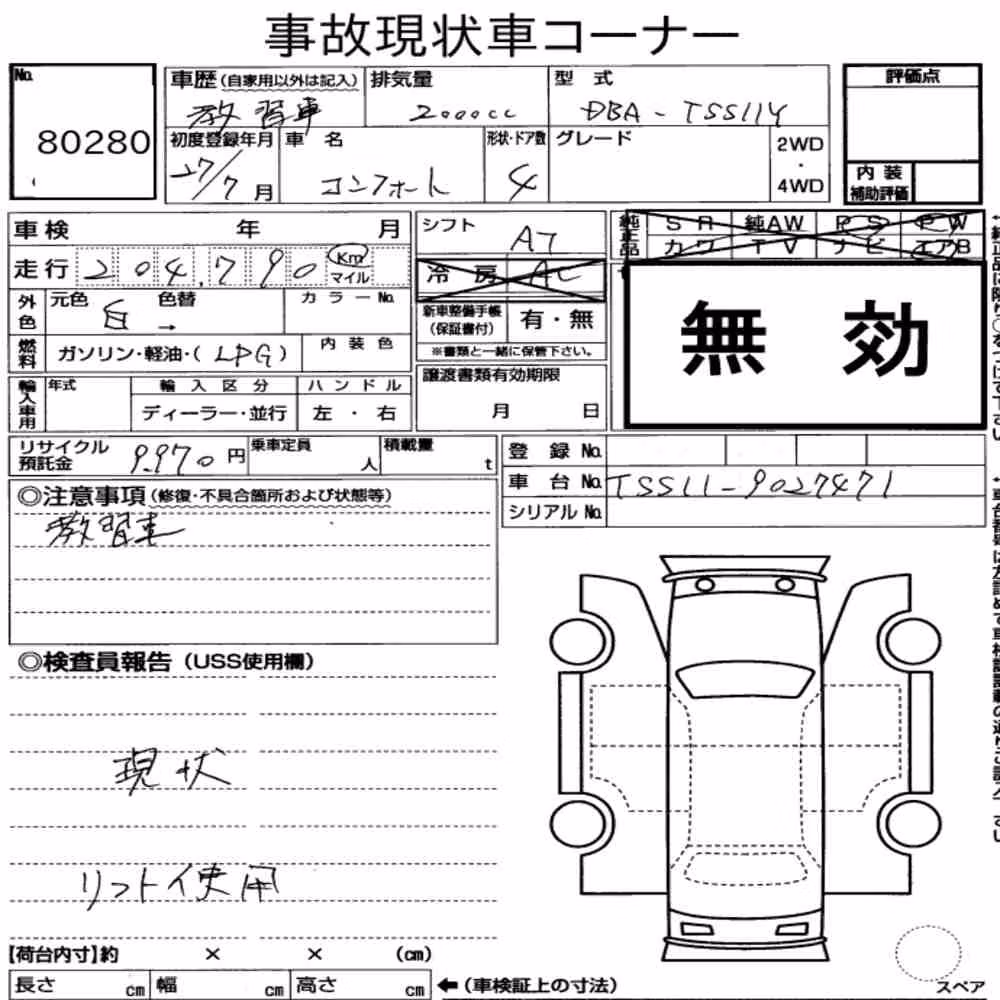 事故現状車コーナー
No. 80280
車歴 (自家用以外は記入) 教習車
排気量 2000cc
型式 DBA-TSS11Y
評価点
初度登録年月 27/7 月
車名 コンフォート
形状・ドア数 4
グレード
2WD・4WD
内装補助評価
車検 年 月
シフト AT
純正品 SR 純AW PS PW
カワ TV ナビ エアB
走行 204,790 Km マイル
冷房 AC
外色 元色 白 → 色替 カラーNo.
新車整備手帳(保証書付) 有・無
※書類と一緒に保管下さい。
無効
燃料 ガソリン・軽油・(LPG) 内装色
譲渡書類有効期限 月 日
輸入車用 年式 輸入区分 ディーラー・並行 ハンドル 左・右
リサイクル預託金 9,970 円
乗車定員 人
積載量 t
登録No.
車台No. TSS11-9027471
シリアルNo.
◎注意事項(修復・不具合箇所および状態等)
教習車
◎検査員報告(USS使用欄)
現状
リフト使用
【荷台内寸】約 × × (cm)
長さ cm 幅 cm 高さ cm
←(車検証上の寸法)
スペア